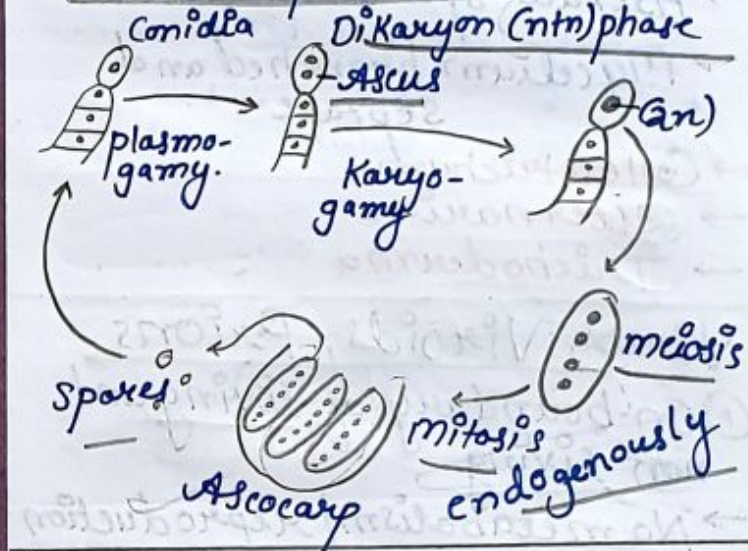 Conidia
Dikaryon (n+n) phase
Ascus
(2n)
plasmo-
gamy.
Karyo-
gamy
meiosis
mitosis
endogenously
Ascocarp
spores